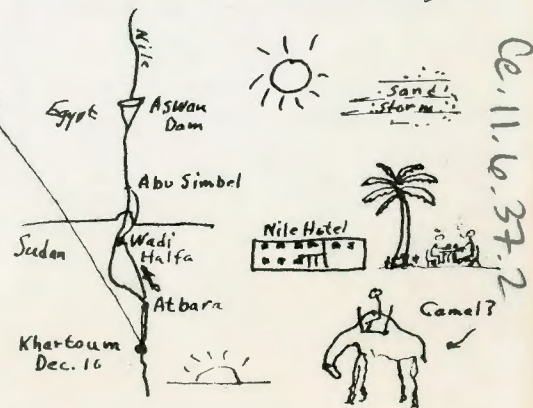 Nile
Egypt
Aswan
Dam
Abu Simbel
Sudan
Wadi
Halfa
Atbara
Khartoum
Dec. 16
Sand
Storm
Nile Hotel
Camal?
Ce.11.6.37.2